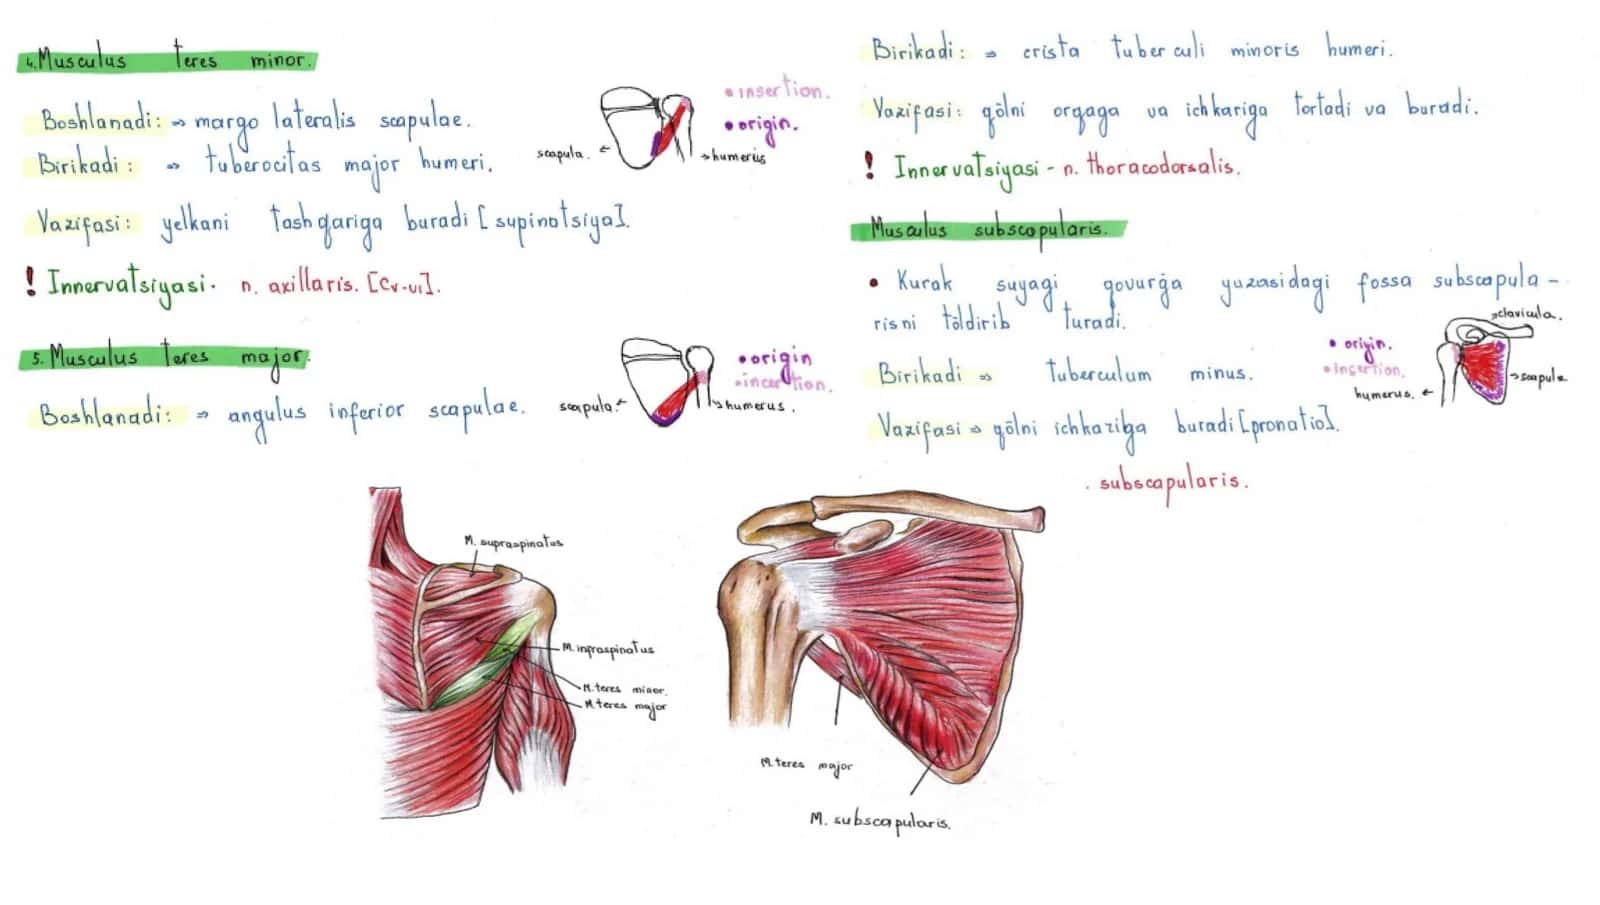 4. Musculus teres minor.
Boshlanadi: ⇒ margo lateralis scapulae.
Birikadi: ⇒ tuberocitas major humeri.
Vazifasi: yelkani tashqariga buradi [supinotsiya].
! Innervatsiyasi - n. axillaris. [Cv-vi].
• insertion.
• origin.
scapula.
humerus
5. Musculus teres major.
Boshlanadi: ⇒ angulus inferior scapulae.
• origin
• incertion.
scapula.
humerus.
Birikadi: ⇒ crista tuberculi minoris humeri.
Vazifasi: qölni orqaga va ichkariga tortadi va buradi.
! Innervatsiyasi - n. thoracodorsalis.
Musculus subscapularis.
• Kurak suyagi qovurğa yuzasidagi fossa subscapula-
risni töldirib turadi.
Birikadi ⇒ tuberculum minus.
Vazifasi ⇒ qölni ichkariga buradi [pronatio].
. subscapularis.
clavicula.
• origin.
• insertion.
scapula
humerus.
M. supraspinatus
M. inpraspinatus
M. teres minor.
M. teres major
M. teres major
M. subscapularis.